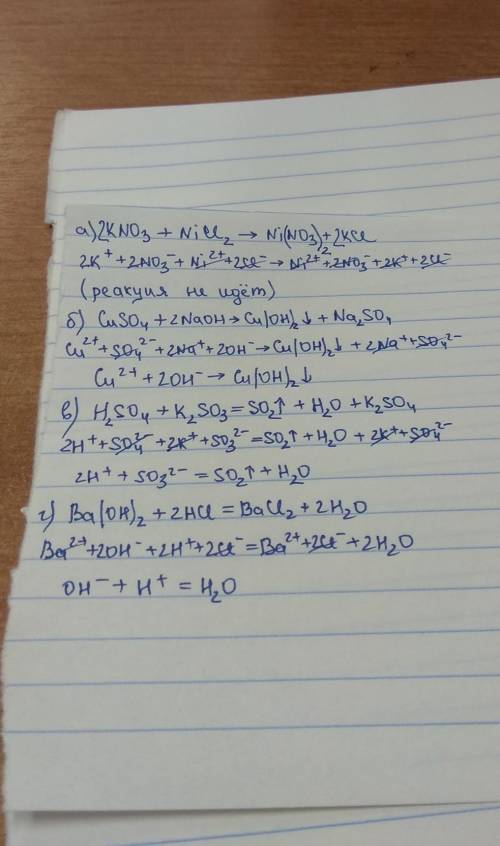 а) 2KNO₃ + NiCl₂ → Ni(NO₃)₂ + 2KCl
2K⁺ + 2NO₃⁻ + Ni²⁺ + 2Cl⁻ → Ni²⁺ + 2NO₃⁻ + 2K⁺ + 2Cl⁻
(реакция не идёт)
б) CuSO₄ + 2NaOH → Cu(OH)₂↓ + Na₂SO₄
Cu²⁺ + SO₄²⁻ + 2Na⁺ + 2OH⁻ → Cu(OH)₂↓ + 2Na⁺ + SO₄²⁻
Cu²⁺ + 2OH⁻ → Cu(OH)₂↓
в) H₂SO₄ + K₂SO₃ = SO₂↑ + H₂O + K₂SO₄
2H⁺ + SO₄²⁻ + 2K⁺ + SO₃²⁻ = SO₂↑ + H₂O + 2K⁺ + SO₄²⁻
2H⁺ + SO₃²⁻ = SO₂↑ + H₂O
г) Ba(OH)₂ + 2HCl = BaCl₂ + 2H₂O
Ba²⁺ + 2OH⁻ + 2H⁺ + 2Cl⁻ = Ba²⁺ + 2Cl⁻ + 2H₂O
OH⁻ + H⁺ = H₂O